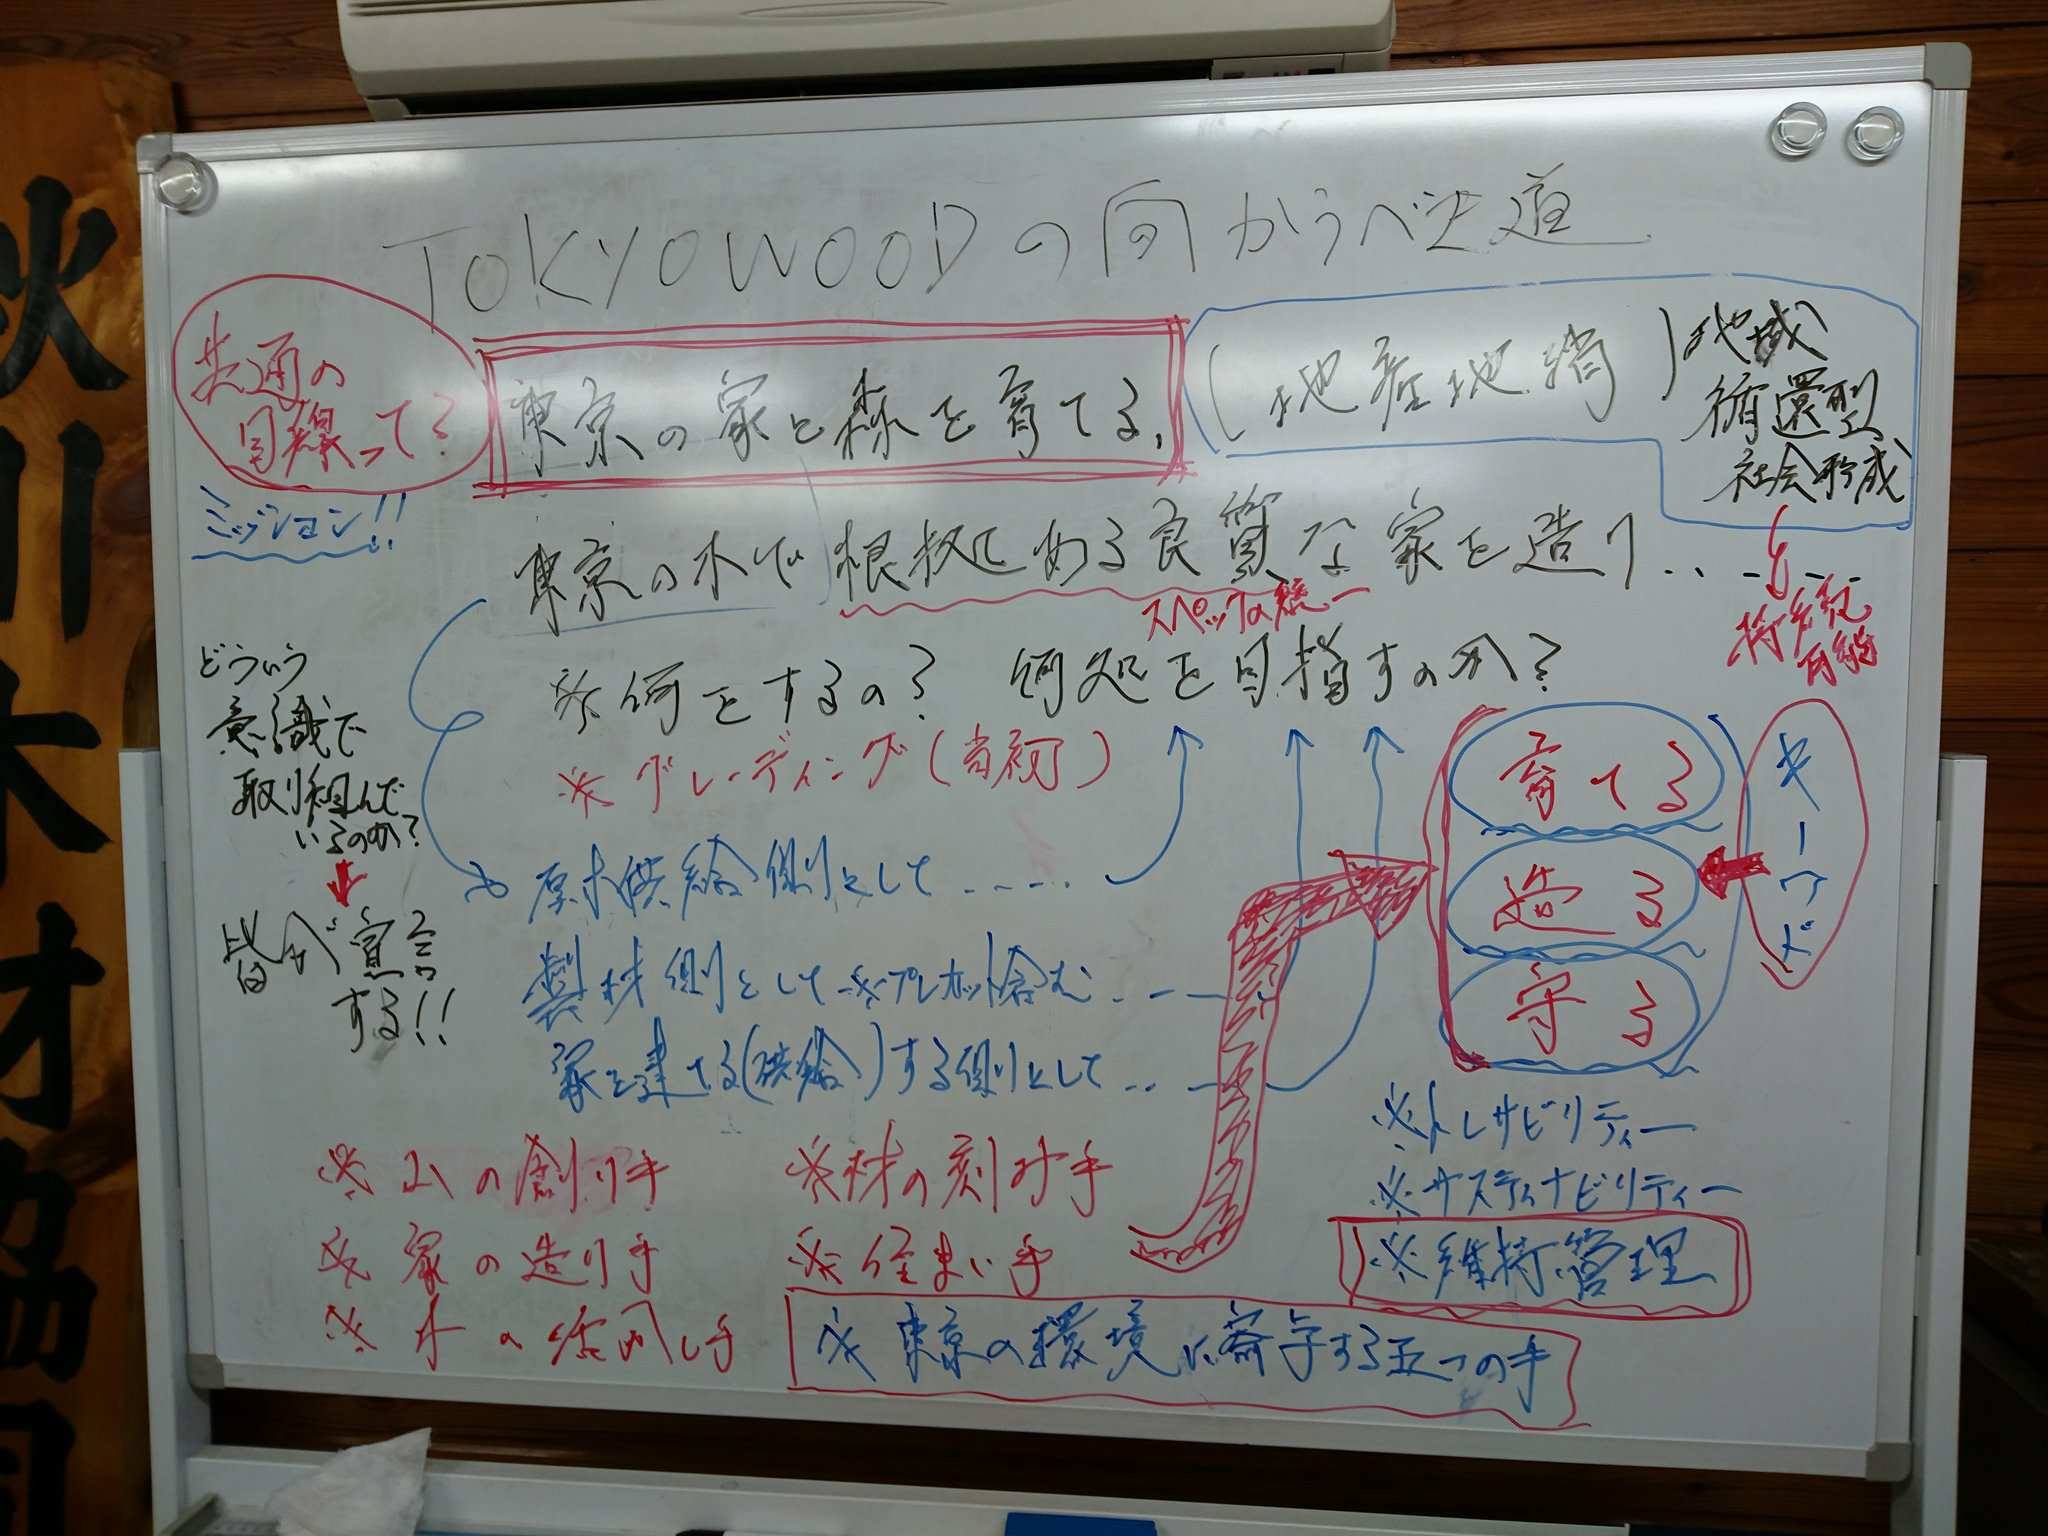 TOKYOWOODの向かうべき道
共通の
目線って?
東京の家と森を育てる、
(地産地消)
地域
循環型
社会形成
ミッション!!
東京の木で根拠ある良質な家を造り......
スペックの統一
持続
可能
※何をするの? 何処を目指すのか?
※グレーディング(当初)
どういう
意識で
取り組んで
いるのか?
皆が宣言
する!!
原木供給側として....
製材側として※プレカット含む...
家を建てる(供給)する側として...
育てる
造る
守る
キーワード
※トレサビリティー
※サスティナビリティー
※維持管理
※山の創り手
※材の刻み手
※家の造り手
※住まい手
※木の活用し手
※東京の環境に寄与する五つの手
秋川木材協同